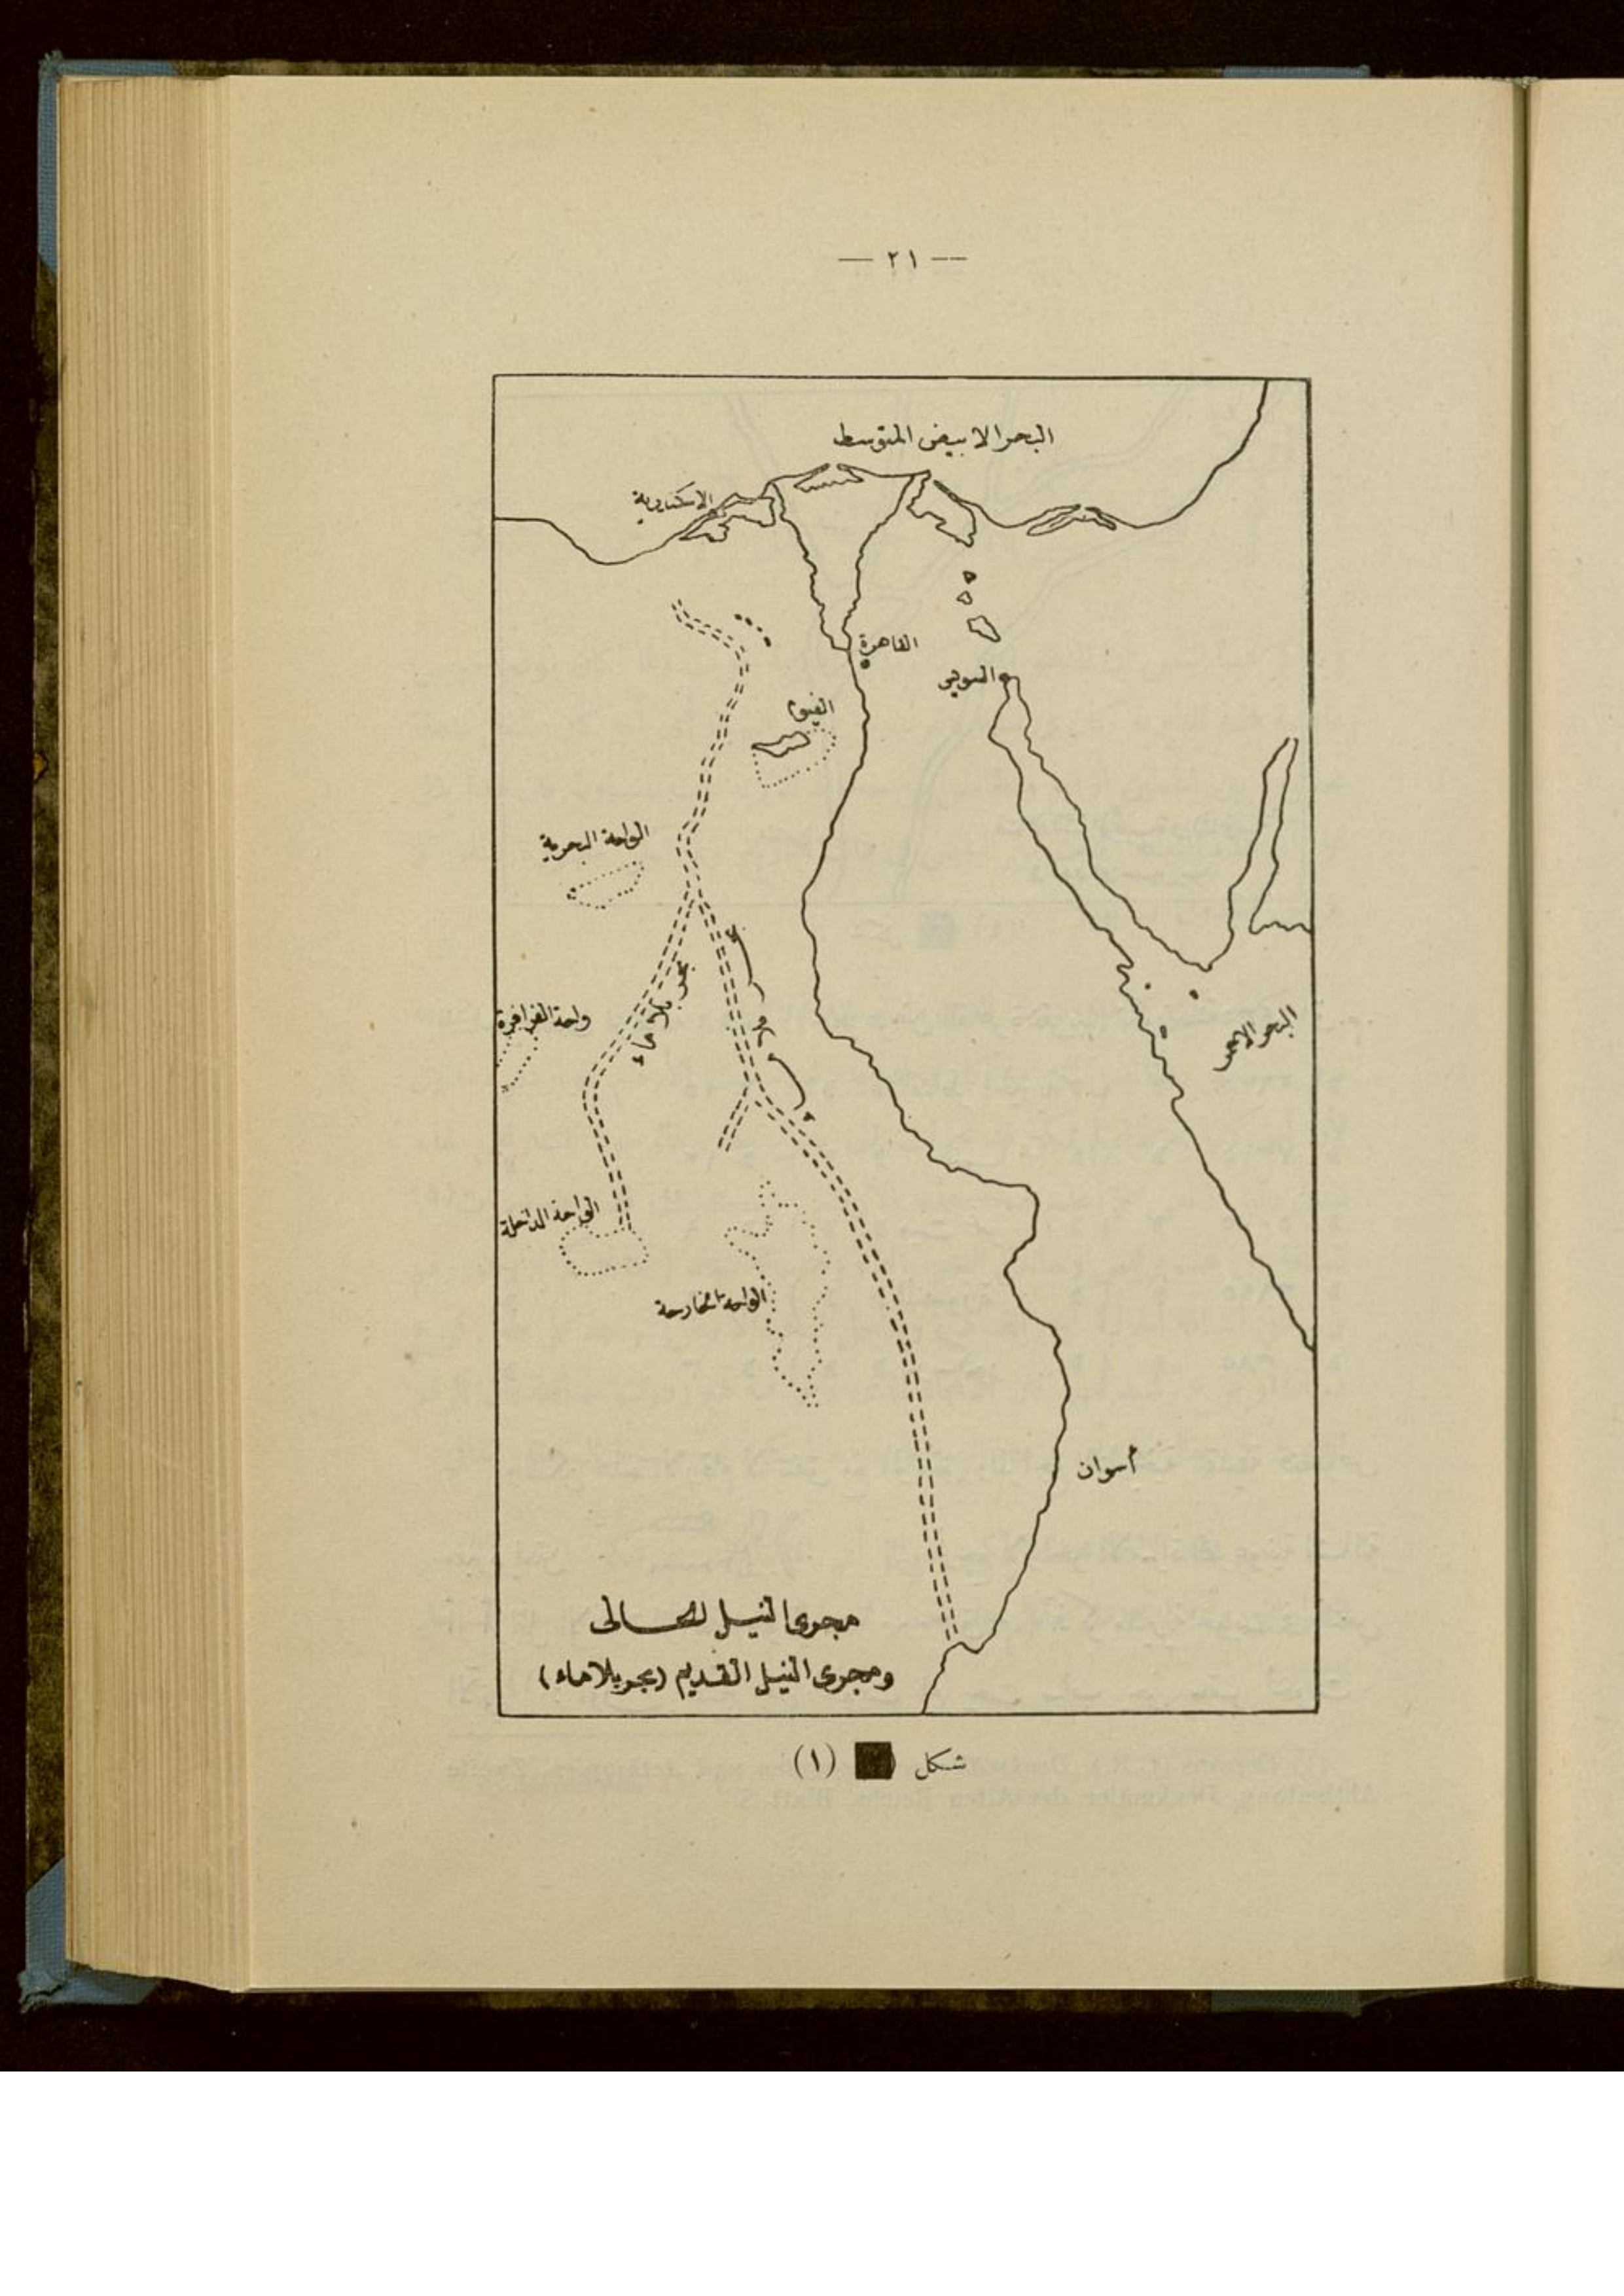 — ٢١ —
البحر الابيض المتوسط
الاسكندرية
القاهرة
السويس
الفيوم
الواحة البحرية
بحر بلا ماء
بحر بلا ماء
واحة الفرافرة
البحر الاحمر
الواحة الداخلة
الواحة الخارجة
أسوان
مجرى النيل الحالى
ومجرى النيل القديم (بحر بلا ماء)
شكل (١)